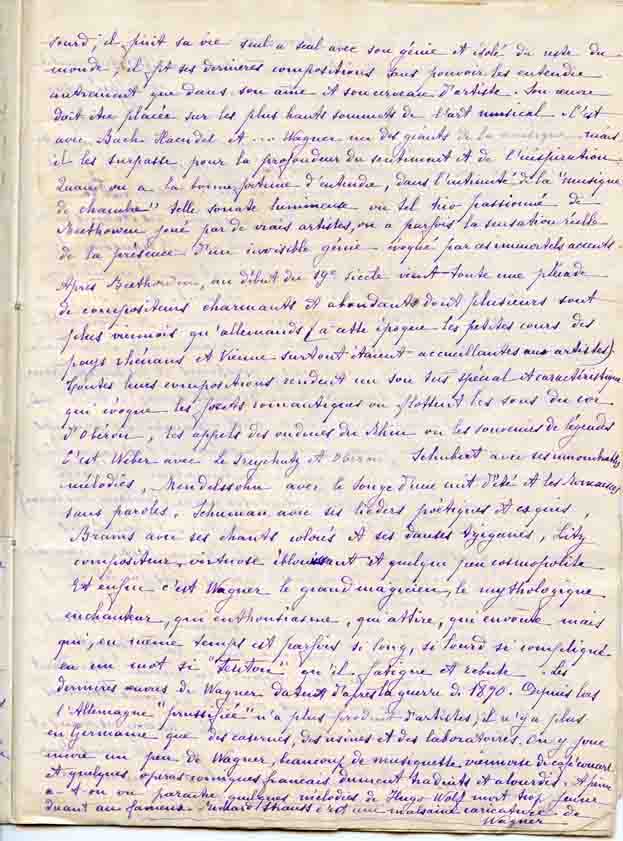 sourd; il finit sa vie seul a seul avec son génie et isolé du reste du
monde; il fit ses dernières compositions sans pouvoir les entendre
autrement que dans son âme et son cerveau d'artiste. Son œuvre
doit être placée sur les plus hauts sommets de l'art musical. C'est
avec Bach Haendel et ... Wagner un des géants de la musique mais
il les surpasse pour la profondeur du sentiment et de l'inspiration
Quand on a la bonne fortune d'entendre, dans l'intimité de la "musique
de chambre" telle sonate lumineuse ou tel trio passionné de
Beethowen joué par de vrais artistes, on a parfois la sensation réelle
de la présence d'un invisible génie évoqué par ces immortels accents.
Après Beethowen, au début du 19e siècle vient toute une pléiade
de compositeurs charmants et abondants dont plusieurs sont
plus viennois qu'allemands (à cette époque les petites cours des
pays rhénans et Vienne surtout étaient accueillantes aux artistes).
Toutes leurs compositions rendent un son très spécial et caractéristique
qui évoque les forêts romantiques ou flottent les sons du cor
d'Obéron, les appels des ondines du Rhin ou les souvenirs de légendes
C'est Weber avec le Freychutz et Oberon, Schubert avec ses innombrables
mélodies, Mendelssohn avec le Songe d'une nuit d'été et les Romances
sans paroles, Schuman avec ses lieders poétiques et exquis,
Brams avec ses chants colorés et ses danses tziganes, Litz
compositeur, virtuose éblouissant et quelque peu cosmopolite
Et enfin c'est Wagner le grand magicien, le mythologique
enchanteur, qui enthousiasme, qui attire, qui envoûte mais
qui, en même temps est parfois si long, si lourd si compliqué
en un mot si "Teuton" qu'il fatigue et rebute. Les
dernières œuvres de Wagner datent d'après la guerre de 1870. Depuis lors
l'Allemagne "prussifiée" n'a plus produit d'artistes, il n'y a plus
en Germanie que des casernes, des usines et des laboratoires. On y joue
encore un peu de Wagner, beaucoup de musiquette viennoise de café concert
et quelques opéras comiques français dument traduits et alourdis. A peine
a-t-on vu paraître quelques mélodies de Hugo Wolf mort trop jeune
quant au fameux Richard Strauss c'est une malsaine caricature de
Wagner